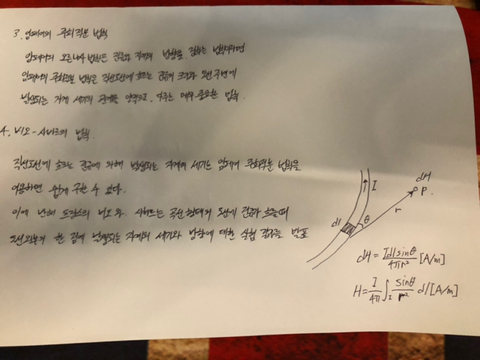 3. 암페어의 주회적분 법칙
암페어의 오른나사 법칙은 전류와 자계의 방향을 정하는 법칙이라면
암페어의 주회적분 법칙은 직선도선에 흐르는 전류의 크기와 도선 주변에
발생되는 자계 세기의 관계를 다루는 매우 중요한 법칙.
4. 비오-사바르의 법칙
직선도선에 흐르는 전류에 의해 발생되는 자계의 세기는 암페어 주회적분 법칙을
이용하면 쉽게 구할 수 있다.
이에 프랑스의 비오와 사바르는 곡선 형태의 도선에 전류가 흐를때
도선 의 한 점에 발생되는 자계의 세기와 방향에 대한 실험 결과를 발표
I
dH
P.
dl
θ
r
dH = Idlsinθ/4πr² [A/m]
H = I/4π ∫ sinθ/r² dl [A/m]